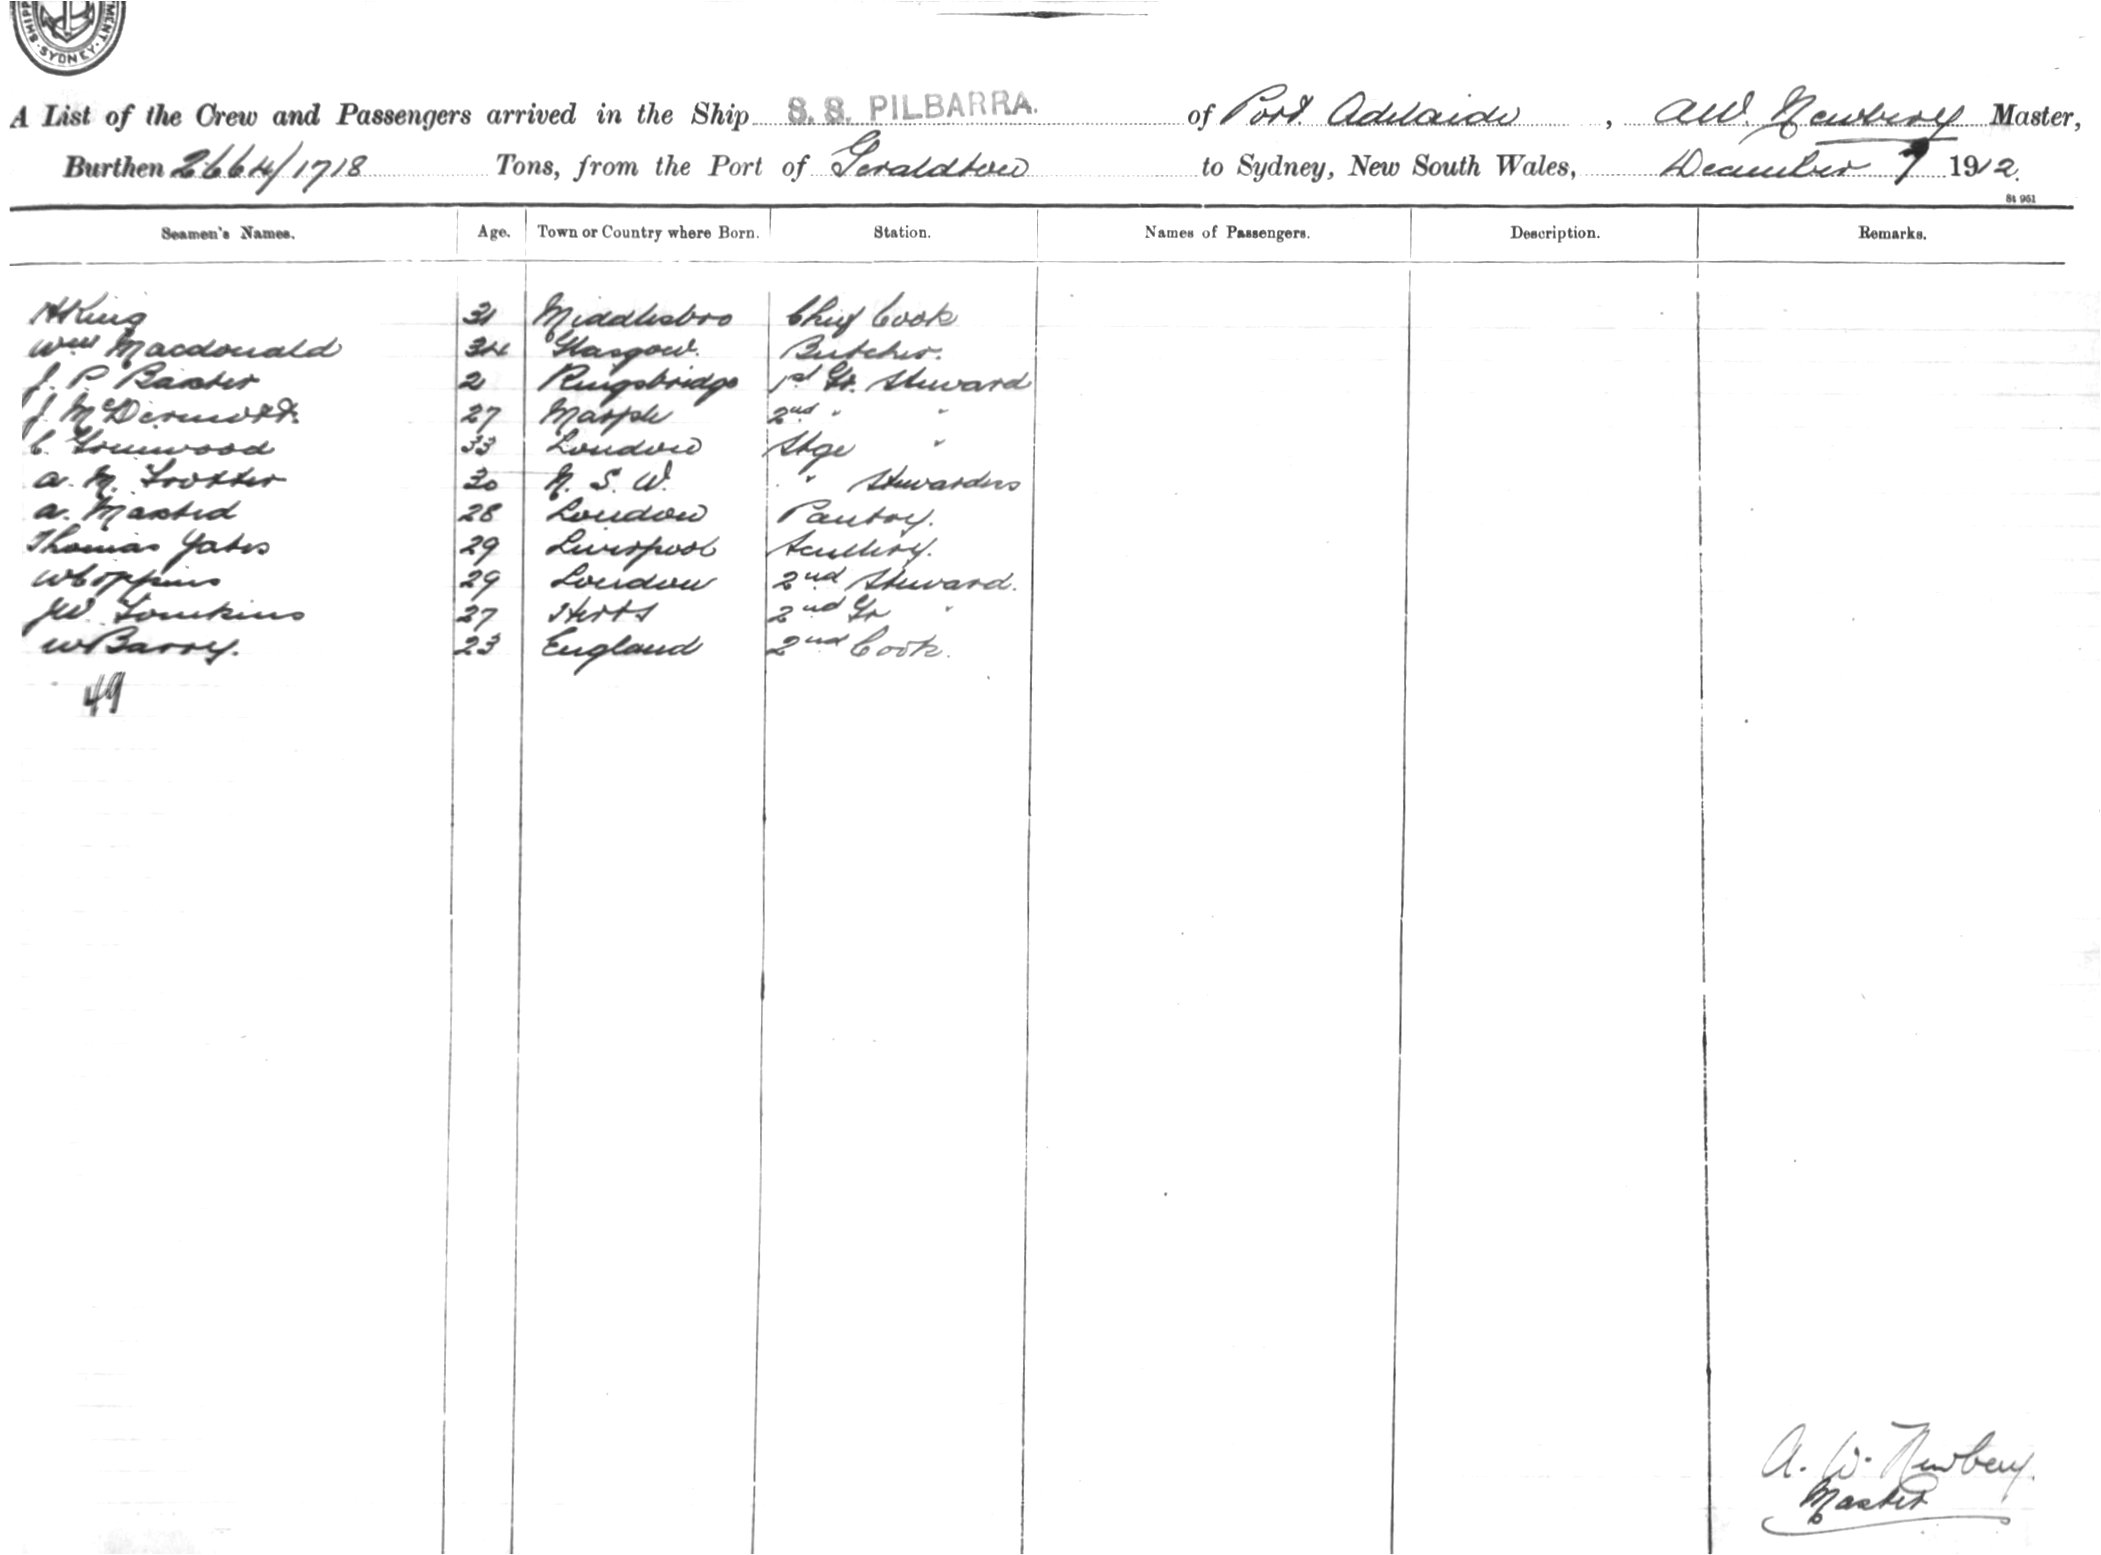 SHIPP MENT. SYDNEY.
A List of the Crew and Passengers arrived in the Ship S. S. PILBARRA. of Port Adelaide, AW. Newbery Master,
Burthen 2664/1718 Tons, from the Port of Geraldton to Sydney, New South Wales, December 7 1912.
St 951
Seamen's Names. Age. Town or Country where Born. Station. Names of Passengers. Description. Remarks.
H King 31 Middlesbro Chief Cook
Wm Macdonald 34 Glasgow. Butcher.
J. P. Baxter 2 Kingsbridge 1st Gr. Steward
J. McDermott. 27 Marple 2nd " "
C. Grinwood 33 London Stge "
A. M. Trotter 30 N. S. W. " Stewardess
A. Maxted 28 London Pantry.
Thomas Yates 29 Liverpool Scullery.
W Coppins 29 London 2nd Steward.
JW. Tomkins 27 Herts 2nd Gr "
W Barry. 23 England 2nd Cook.
49
A. W. Newbery.
Master